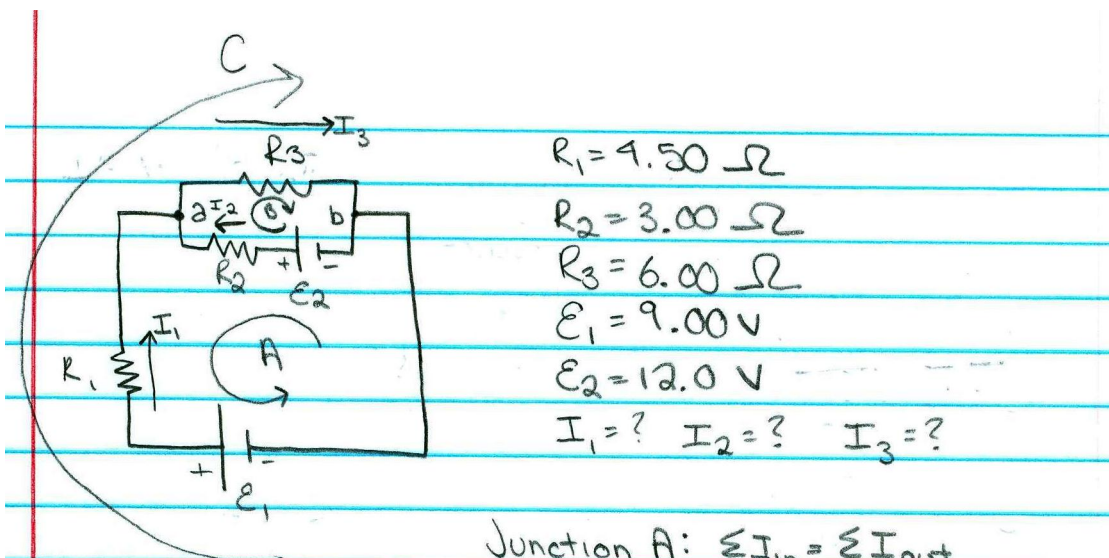 C
I₃
R₃
a I₂ B b
R₂ + -
ε₂
I₁
A
R₁
+ -
ε₁
R₁ = 4.50 Ω
R₂ = 3.00 Ω
R₃ = 6.00 Ω
ε₁ = 9.00 V
ε₂ = 12.0 V
I₁ = ? I₂ = ? I₃ = ?
Junction A: ΣI_in = ΣI_out